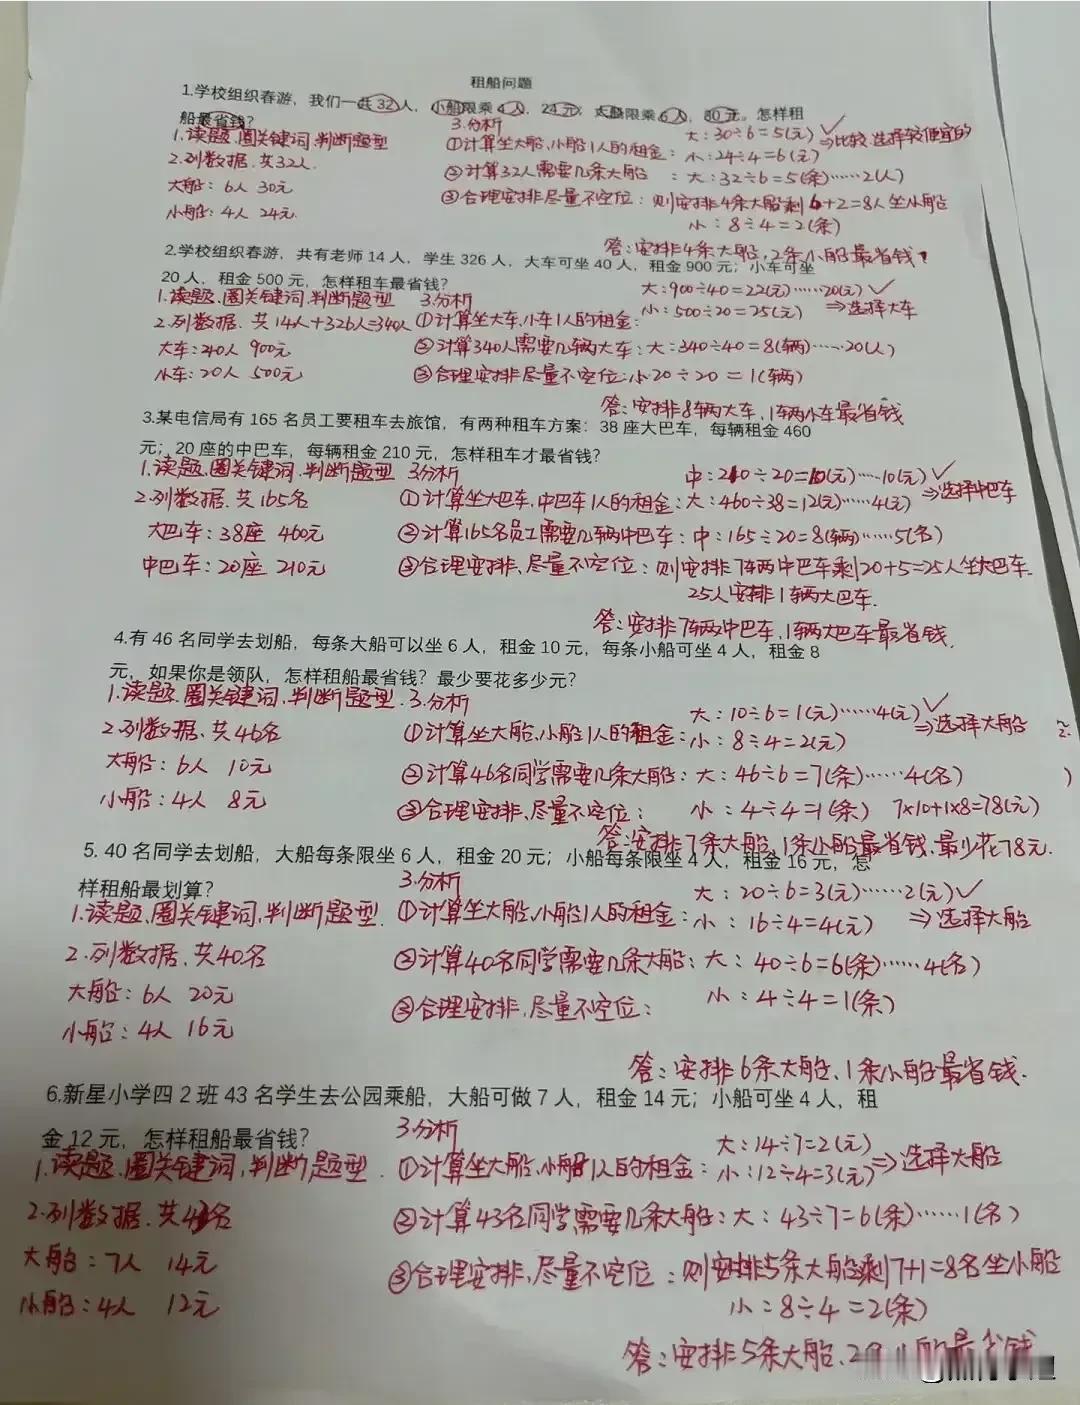 租船问题
1.学校组织春游，我们一共 32 人，小船限乘 4 人，24 元，大船限乘 6 人，30 元。怎样租
船最省钱？
1.读题、圈关键词、判断题型
2.列数据、共32人.
大船：6人 30元
小船：4人 24元.
3.分析
①计算坐大船、小船1人的租金：
大：30÷6=5(元) ✓
小：24÷4=6(元)
⇒比较.选择较便宜的
②计算32人需要几条大船 ：大：32÷6=5(条)……2(人)
③合理安排尽量不空位：则安排4条大船剩6+2=8人坐小船
小：8÷4=2(条)
答：安排4条大船，2条小船最省钱.
2.学校组织春游，共有老师 14 人，学生 326 人，大车可坐 40 人，租金 900 元；小车可坐
20 人，租金 500 元，怎样租车最省钱？
1.读题、圈关键词、判断题型
2.列数据、共14人+326人=340人
大车：40人 900元
小车：20人 500元
3.分析
①计算坐大车、小车1人的租金：
大：900÷40=22(元)……20(元) ✓
小：500÷20=25(元)
⇒选择大车
②计算340人需要几辆大车：大：340÷40=8(辆)……20(人)
③合理安排尽量不空位：小20÷20=1(辆)
答：安排8辆大车，1辆小车最省钱
3.某电信局有 165 名员工要租车去旅馆，有两种租车方案：38 座大巴车，每辆租金 460
元；20 座的中巴车，每辆租金 210 元，怎样租车才最省钱？
1.读题、圈关键词、判断题型
2.列数据、共165名
大巴车：38座 460元
中巴车：20座 210元
3.分析
①计算坐大巴车、中巴车1人的租金：
中：210÷20=10(元)……10(元) ✓
大：460÷38=12(元)……4(元)
⇒选择中巴车
②计算165名员工需要几辆中巴车：中：165÷20=8(辆)……5(名)
③合理安排、尽量不空位：则安排7辆中巴车剩20+5=25人坐大巴车.
25人安排1辆大巴车.
答：安排7辆中巴车，1辆大巴车最省钱.
4.有 46 名同学去划船，每条大船可以坐 6 人，租金 10 元，每条小船可坐 4 人，租金 8
元，如果你是领队，怎样租船最省钱？最少要花多少元？
1.读题、圈关键词、判断题型.
2.列数据、共46名
大船：6人 10元
小船：4人 8元
3.分析
①计算坐大船、小船1人的租金：
大：10÷6=1(元)……4(元) ✓
小：8÷4=2(元)
⇒选择大船
②计算46名同学需要几条大船：大：46÷6=7(条)……4(名)
③合理安排、尽量不空位： 小：4÷4=1(条) 7×10+1×8=78(元)
答：安排7条大船，1条小船最省钱.最少花78元.
5. 40 名同学去划船，大船每条限坐 6 人，租金 20 元；小船每条限坐 4 人，租金 16 元，怎
样租船最划算？
1.读题、圈关键词、判断题型.
2.列数据、共40名
大船：6人 20元
小船：4人 16元
3.分析
①计算坐大船、小船1人的租金：
大：20÷6=3(元)……2(元) ✓
小：16÷4=4(元)
⇒选择大船
②计算40名同学需要几条大船：大：40÷6=6(条)……4(名)
③合理安排、尽量不空位：
小：4÷4=1(条)
答：安排6条大船、1条小船最省钱.
6.新星小学四 2 班 43 名学生去公园乘船，大船可做 7 人，租金 14 元；小船可坐 4 人，租
金 12 元，怎样租船最省钱？
1.读题、圈关键词、判断题型.
2.列数据、共43名
大船：7人 14元
小船：4人 12元
3.分析
①计算坐大船、小船1人的租金：
大：14÷7=2(元)
小：12÷4=3(元)
⇒选择大船
②计算43名同学需要几条大船：大：43÷7=6(条)……1(名)
③合理安排、尽量不空位：则安排5条大船剩7+1=8名坐小船
小：8÷4=2(条)
答：安排5条大船、2 小船最省钱